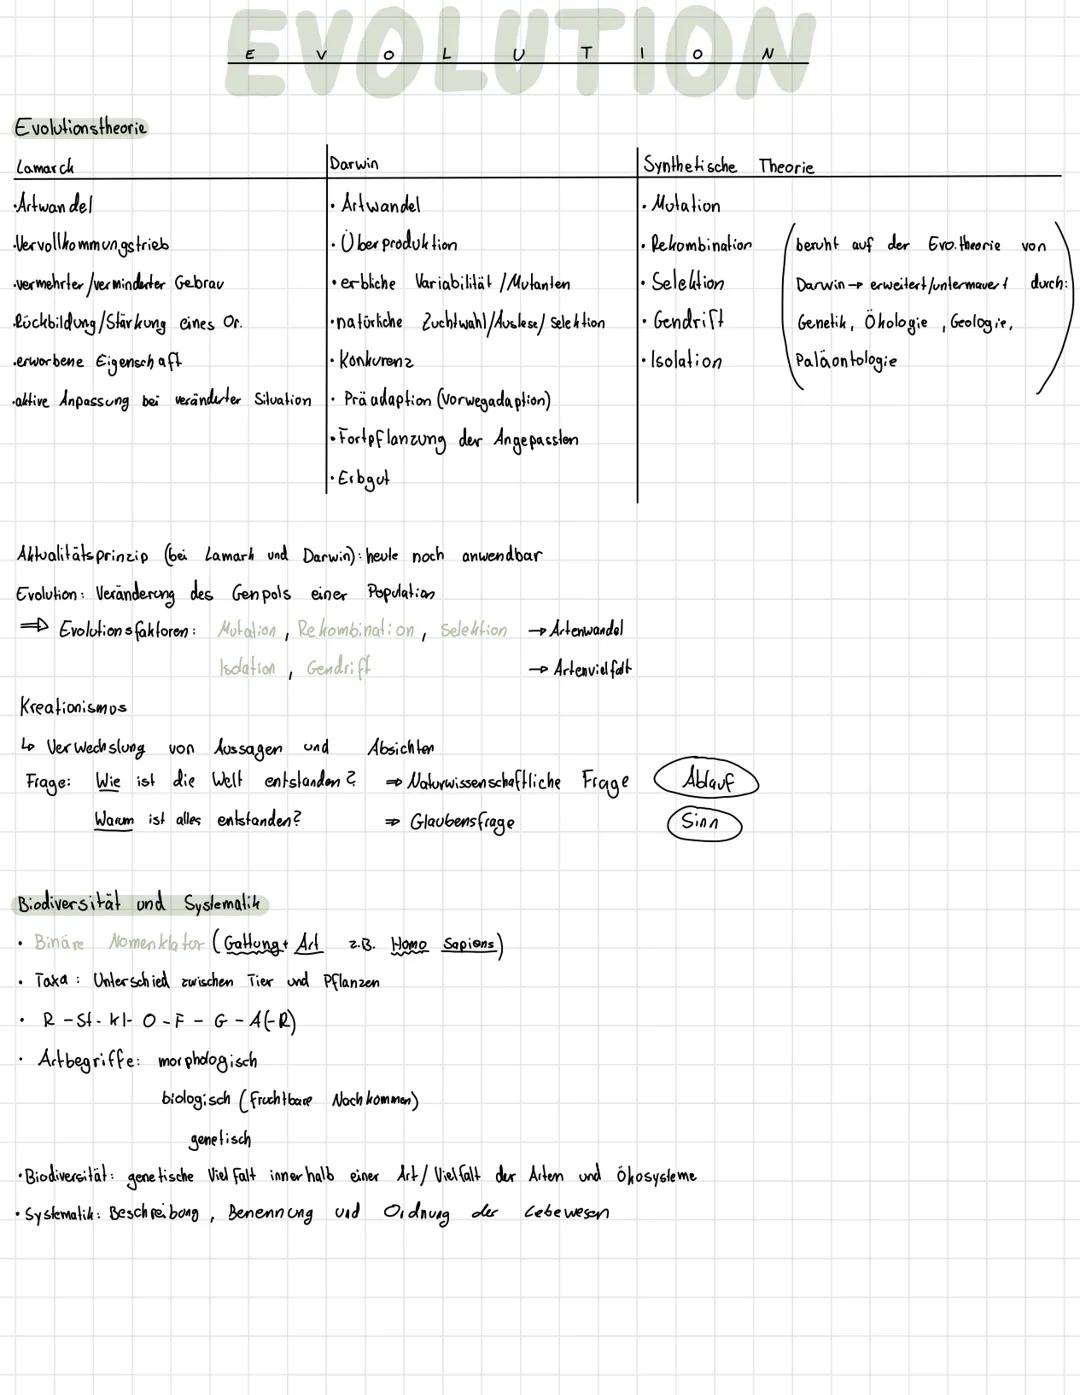 EVOLUTION
E V O L U T I O N
Evolutionstheorie
Lamarck
·Artwandel
·Vervollkommungstrieb
·vermehrter/verminderter Gebrau
Rückbildung/Stärkung eines Or.
·erworbene Eigenschaft
·aktive Anpassung bei veränderter Situation
Darwin
· Artwandel
· Überproduktion
· erbliche Variabilität /Mutanten
·natürliche Zuchtwahl/Auslese/Selektion
· Konkurenz
· Präadaption (Vorwegadaption)
·Fortpflanzung der Angepassten
·Erbgut
Synthetische Theorie
· Mutation
· Rekombination
· Selektion
· Gendrift
· Isolation
(beruht auf der Evo.theorie von
Darwin → erweitert/untermauert durch:
Genetik, Ökologie, Geologie,
Paläontologie)
Aktualitätsprinzip (bei Lamark und Darwin): heute noch anwendbar
Evolution: Veränderung des Genpols einer Population
⇒ Evolutionsfaktoren: Mutation, Rekombination, Selektion → Artenwandel
Isolation, Gendrift → Artenvielfalt
Kreationismus
↳ Verwechslung von Aussagen und Absichten
Frage: Wie ist die Welt entstanden? ⇒ Naturwissenschaftliche Frage Ablauf
Warum ist alles entstanden? ⇒ Glaubensfrage Sinn
Biodiversität und Systematik
· Binäre Nomenklatur (Gattung+ Art z.B. Homo Sapiens)
· Taxa: Unterschied zwischen Tier und Pflanzen
· R - St - Kl - O - F - G - A(-R)
· Artbegriffe: morphologisch
biologisch (fruchtbare Nachkommen)
genetisch
·Biodiversität: genetische Vielfalt innerhalb einer Art/Vielfalt der Arten und Ökosysteme
·Systematik: Beschreibung, Benennung und Ordnung der Lebewesen